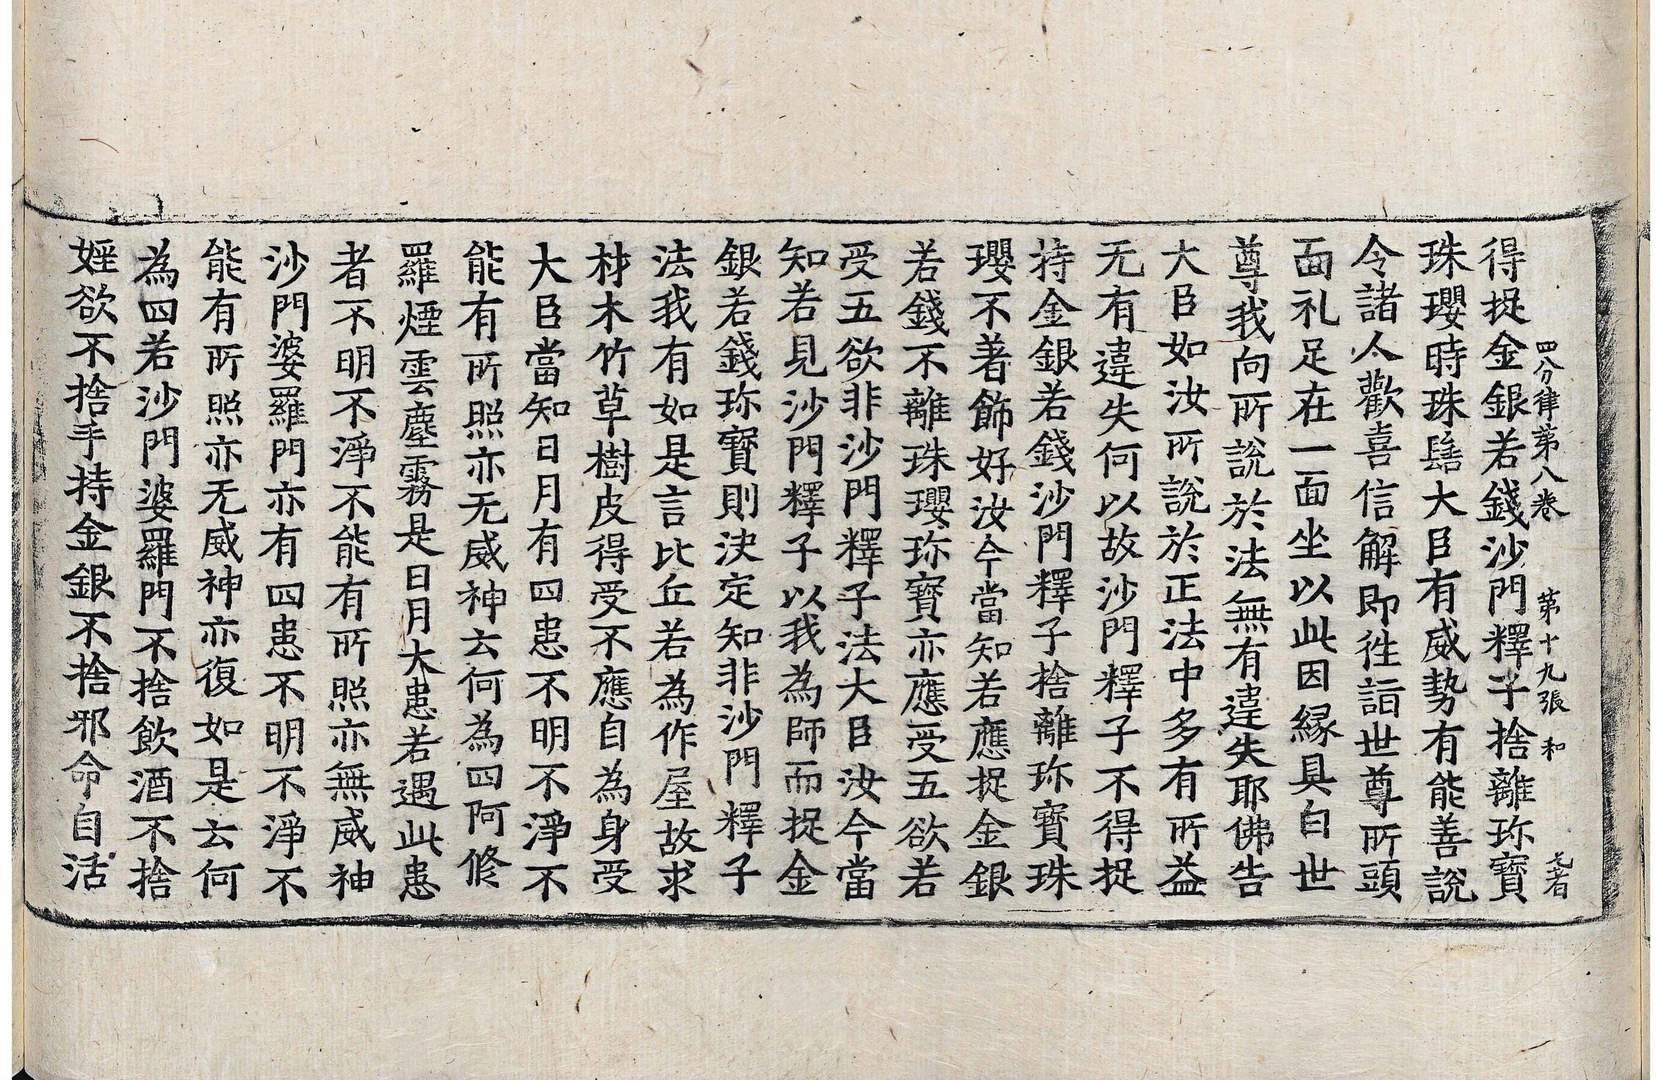 四分律第八卷　第十九張　和
得捉金銀若錢沙門釋子捨離珎寶
珠瓔時珠髻大臣有威勢有能善說
令諸人歡喜信解即徃詣世尊所頭
面礼足在一面坐以此因縁具白世
尊我向所說於法無有違失耶佛告
大臣如汝所說於正法中多有所益
无有違失何以故沙門釋子不得捉
持金銀若錢沙門釋子捨離珎寶珠
瓔不著飾好汝今當知若應捉金銀
若錢不離珠瓔珎寶亦應受五欲若
受五欲非沙門釋子法大臣汝今當
知若見沙門釋子以我為師而捉金
銀若錢珎寶則決定知非沙門釋子
法我有如是言比丘若為作屋故求
材木竹草樹皮得受不應自為身受
大臣當知日月有四患不明不淨不
能有所照亦无威神云何為四阿修
羅煙雲塵霧是日月大患若遇此患
者不明不淨不能有所照亦無威神
沙門婆羅門亦有四患不明不淨不
能有所照亦无威神亦復如是云何
為四若沙門婆羅門不捨飲酒不捨
婬欲不捨手持金銀不捨邪命自活